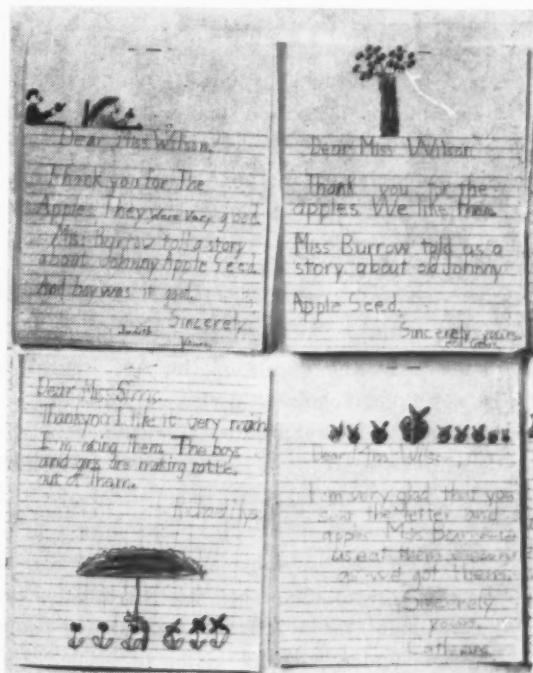 Dear Miss Wilson,
Thack you for The
Apples. They were very good.
Miss Burrow told a story
about Johnny Apple Seed.
And boy was it good.
Sincerely
Judith
Yours,
Dear Miss Wilson
Thank you for the
apples. We like them.
Miss Burrow told us a
story about old Johnny
Apple Seed.
Sincerely yours,
Dear Mrs. Sims.
Thankyou I like it very much
I'm using them. The boys
and girls are making rattle
out of them.
Dear Mrs. Wilson,
I'm very glad that you
the letter and
apples. Miss
us eat them
as we got them.
Sincerely
yours,
Catherine